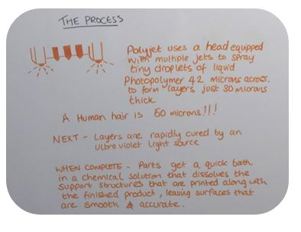 THE PROCESS
Polyjet uses a head equipped
with multiple jets to spray
tiny droplets of liquid
Photopolymer 42 microns across,
to form layers just 30 microns
thick.
A Human hair is 60 microns!!!
NEXT - Layers are rapidly cured by an
ultraviolet light source
WHEN COMPLETE - Parts get a quick bath
in a chemical solution that dissolves the
support structures that are printed along with
the finished product, leaving surfaces that
are smooth & accurate.